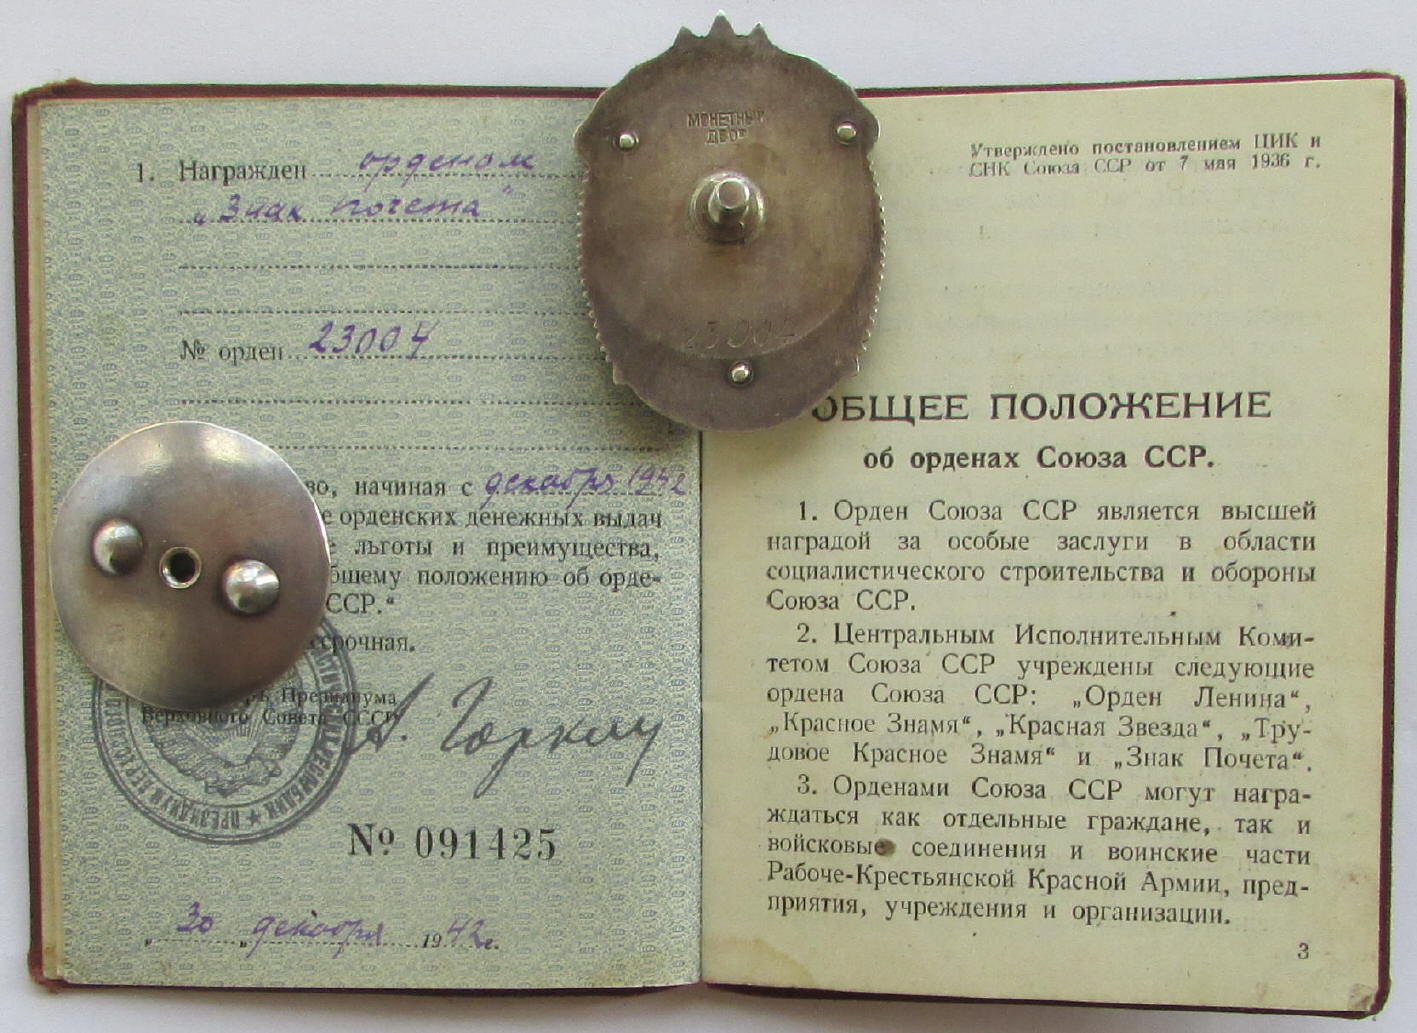 1. Награжден орденом
„Знак почета"
№ орден 23004
во, начиная с декабря 1942
е орденских денежных выдач
льготы и преимущества,
бщему положению об орде-
СССР.“
ссрочная.
Президиума
Верховного Совета СССР
А. Горкин
№ 091425
„30 „ декабря 1942 г.
МОНЕТНЫЙ
ДВОР
Утверждено постановлением ЦИК и
СНК Союза ССР от 7 мая 1936 г.
ОБЩЕЕ ПОЛОЖЕНИЕ
об орденах Союза ССР.
1. Орден Союза ССР является высшей
наградой за особые заслуги в области
социалистического строительства и обороны
Союза ССР.
2. Центральным Исполнительным Коми-
тетом Союза ССР учреждены следующие
ордена Союза ССР: „Орден Ленина“,
„Красное Знамя“, „Красная Звезда“, „Тру-
довое Красное Знамя“ и „Знак Почета“.
3. Орденами Союза ССР могут награ-
ждаться как отдельные граждане, так и
войсковые соединения и воинские части
Рабоче-Крестьянской Красной Армии, пред-
приятия, учреждения и организации.
3